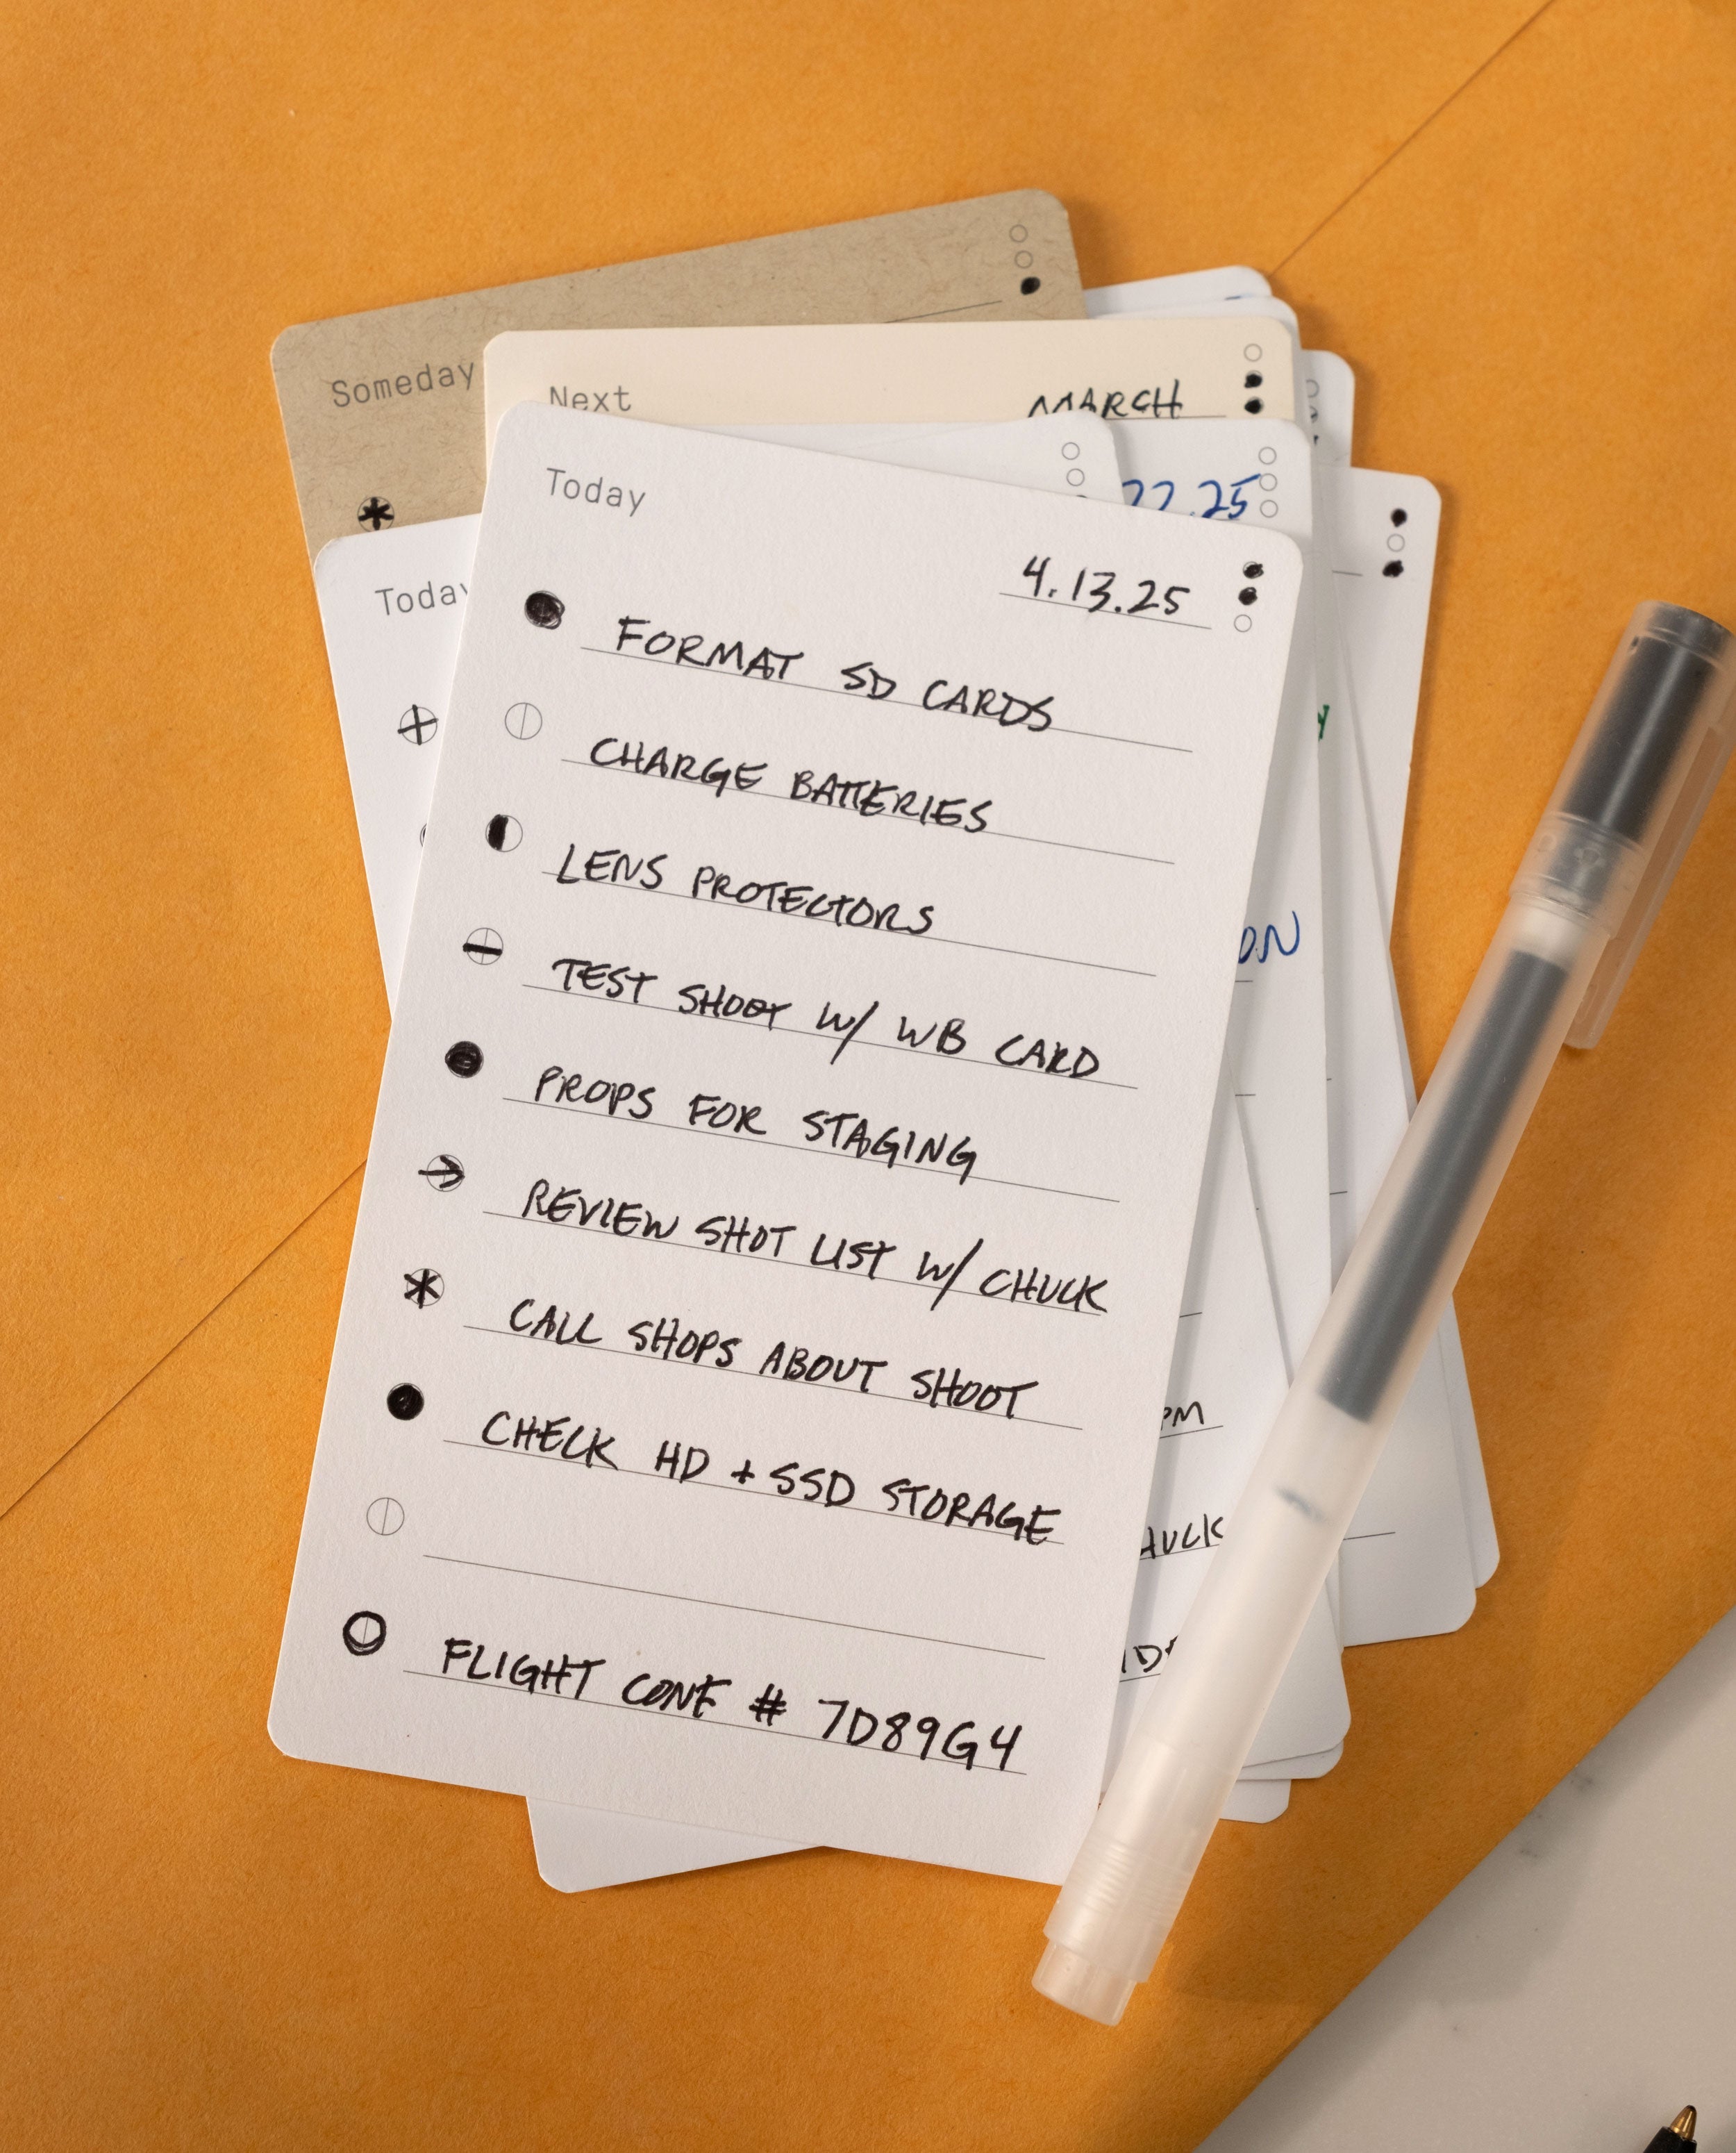 Someday
Next
MARCH
Today
22.25
Today
4.13.25
FORMAT SD CARDS
CHARGE BATTERIES
LENS PROTECTORS
TEST SHOOT W/ WB CARD
PROPS FOR STAGING
REVIEW SHOT LIST W/ CHUCK
CALL SHOPS ABOUT SHOOT
CHECK HD + SSD STORAGE
FLIGHT CONF # 7D89G4
ON
PM
HUCK